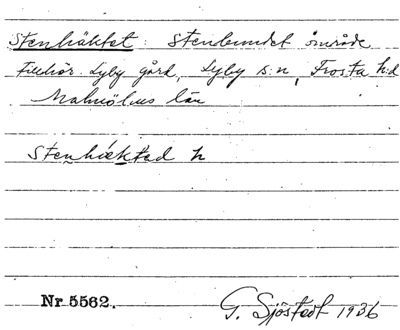 Stenhäktet: Stenbundet område
Tillhör. Lyby gård, Lyby s:n, Frosta h:d
Malmöhus län
Stenhäktad h
Nr 5562.
G. Sjöstedt 1936